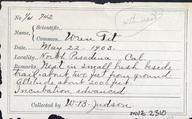 No. 1/4 742
Name { Scientific,
Common, Wren Tit
Date, May 22. 1903.
Locality, North Pasadena Cal
Remarks, Nest in small bush beside
trail about two feet from ground
Altitude about 2500 feet.
Incubation advanced.
Collected by W.B. Judson
MVZ 2310